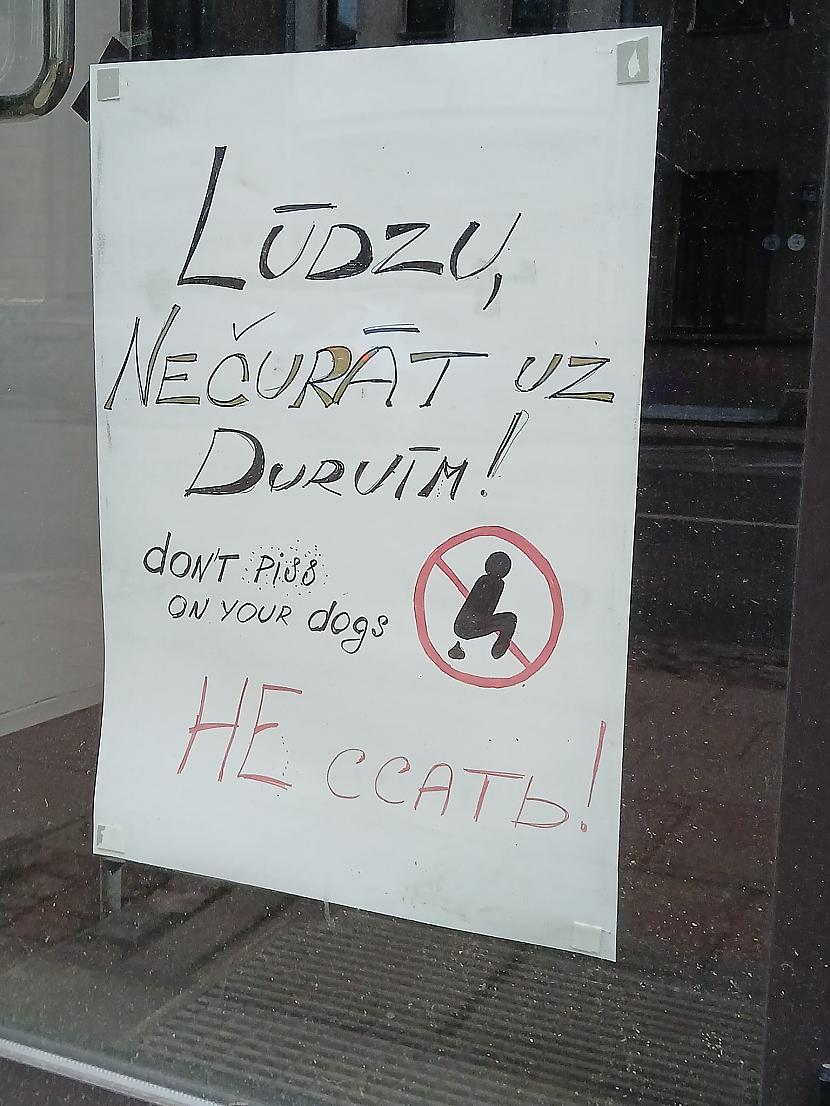 LŪDZU,
NEČURĀT UZ
DURVĪM!
dON'T PiSS
ON YOUR dogs
НЕ ССАТЬ!